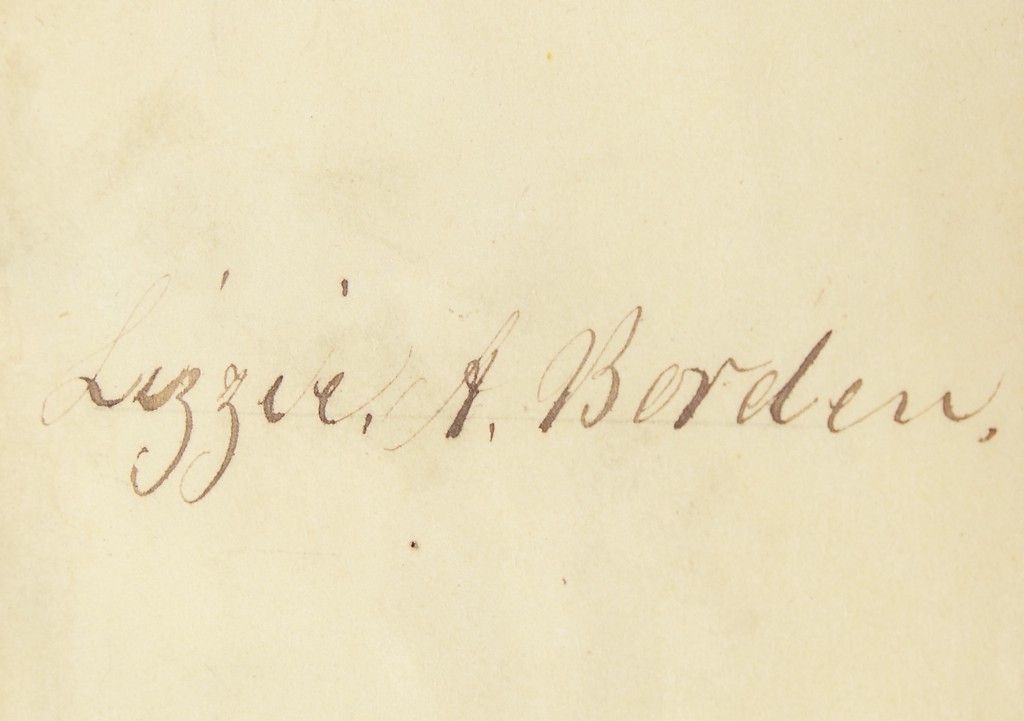 Lizzie. A. Borden.